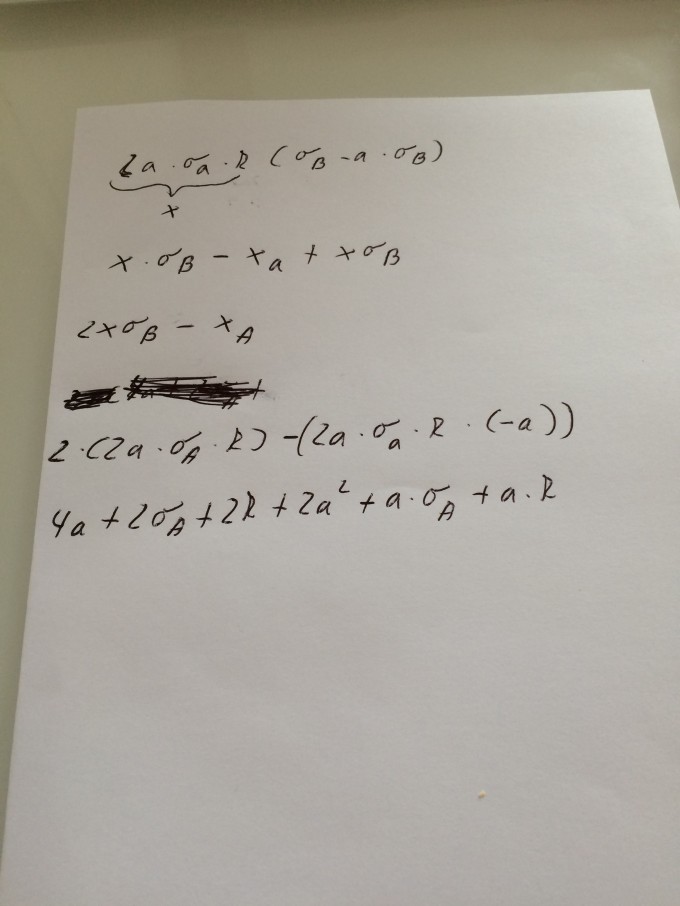 2a · σa · R (σB - a · σB)
x
x · σB - xa + xσB
2xσB - xA
2 · (2a · σA · R) - (2a · σa · R · (-a))
4a + 2σA + 2R + 2a² + a · σA + a · R